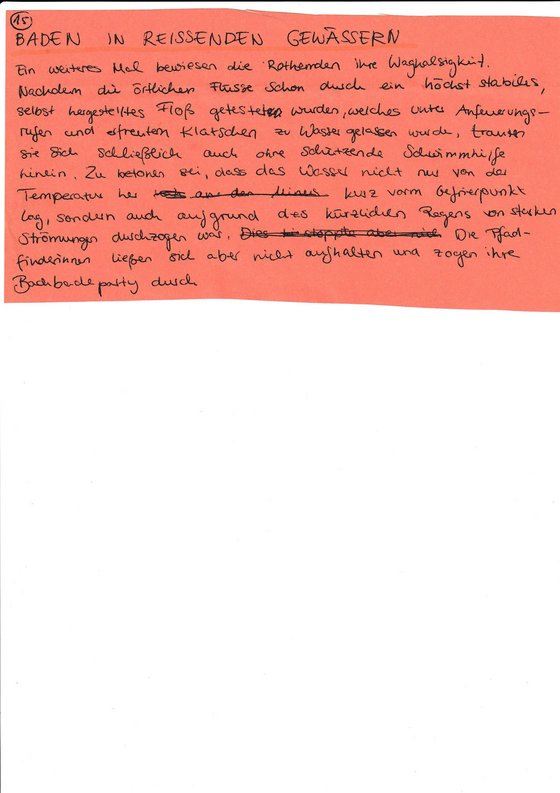 15
BADEN IN REISSENDEN GEWÄSSERN
Ein weiteres Mal bewiesen die Rothemden ihre Waghalsigkeit.
Nachdem die örtlichen Flüsse schon durch ein höchst stabiles,
selbst hergestelltes Floß getestet wurden, welches unter Anfeuerungs-
rufen und erfreutem Klatschen zu Wasser gelassen wurde, trauten
sie sich schließlich auch ohne schützende Schwimmhilfe
hinein. Zu betonen sei, dass das Wasser nicht nur von der
Temperatur her kurz vorm Gefrierpunkt
lag, sondern auch aufgrund des kürzlichen Regens von starken
Strömungen durchzogen war. Die Pfad-
finderinnen ließen sich aber nicht aufhalten und zogen ihre
Bachbadeparty durch